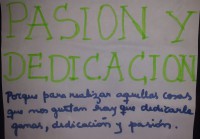 PASION Y
DEDICACION
Porque para realizar aquellas cosas
que nos gustan hay que dedicarle
ganas, dedicación y pasión.